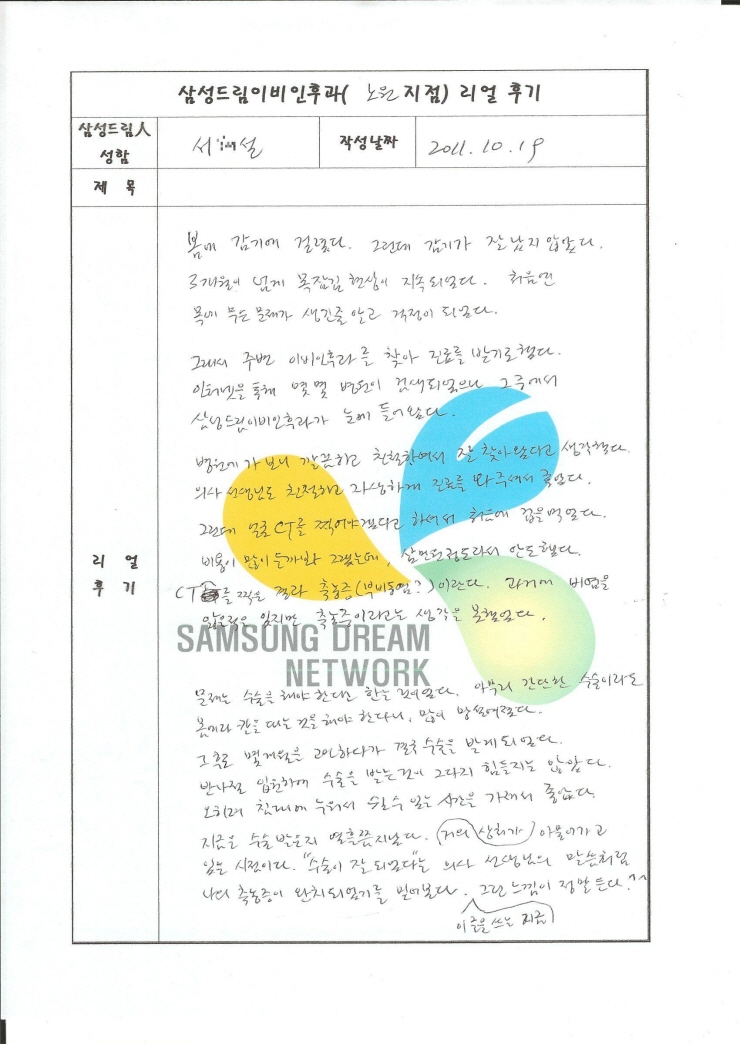 삼성드림이비인후과( 노원 지점) 리얼 후기
삼성드림人 성함
서 설
작성날짜
2011.10.19
제 목
리 얼 후 기
봄에 감기에 걸렸다. 그런데 감기가 잘 낫지 않았다.
3개월이 넘게 목잠김 현상이 지속되었다. 처음엔
목에 무슨 문제가 생긴줄 알고 걱정이 되었다.
그래서 주변 이비인후과를 찾아 진료를 받기로 했다.
인터넷을 통해 몇몇 병원이 검색되었으나 그 중에서
삼성드림이비인후과가 눈에 들어왔다.
병원에 가보니 깔끔하고 친절함에서 잘 찾아왔다고 생각했다.
의사 선생님도 친절하고 자상하게 진료를 봐주셔서 좋았다.
그런데 얼굴 CT를 찍어야겠다고 하셔서 처음에 겁을 먹었다.
비용이 많이 들까봐 그랬는데, 안도했다.
CT를 찍은 결과 축농증(부비동염?)이란다. 과거에 비염을
앓은적은 있지만 축농증이라고는 생각을 못했었다.
SAMSUNG DREAM
NETWORK
문제는 수술을 해야 한다고 한는 것이었다. 아무리 간단한 수술이라도
몸에다 칼을 대는 것을 해야 한다니, 많이 망설여졌다.
그 후로 몇개월을 고민하다가 결국 수술을 받게 되었다.
반나절 입원하여 수술을 받는 것이 그다지 힘들지는 않았다.
오히려 침대에 누워서 쉴 수 있는 시간을 가져서 좋았다.
지금은 수술 받은지 열흘쯤 지났다. 거의 상처가 아물어가고
있는 시점이다. "수술이 잘 되었다"는 의사 선생님의 말씀처럼
나의 축농증이 완치되었기를 빌어본다. 그런 느낌이 정말 든다.^^
이 글을 쓰는 지금